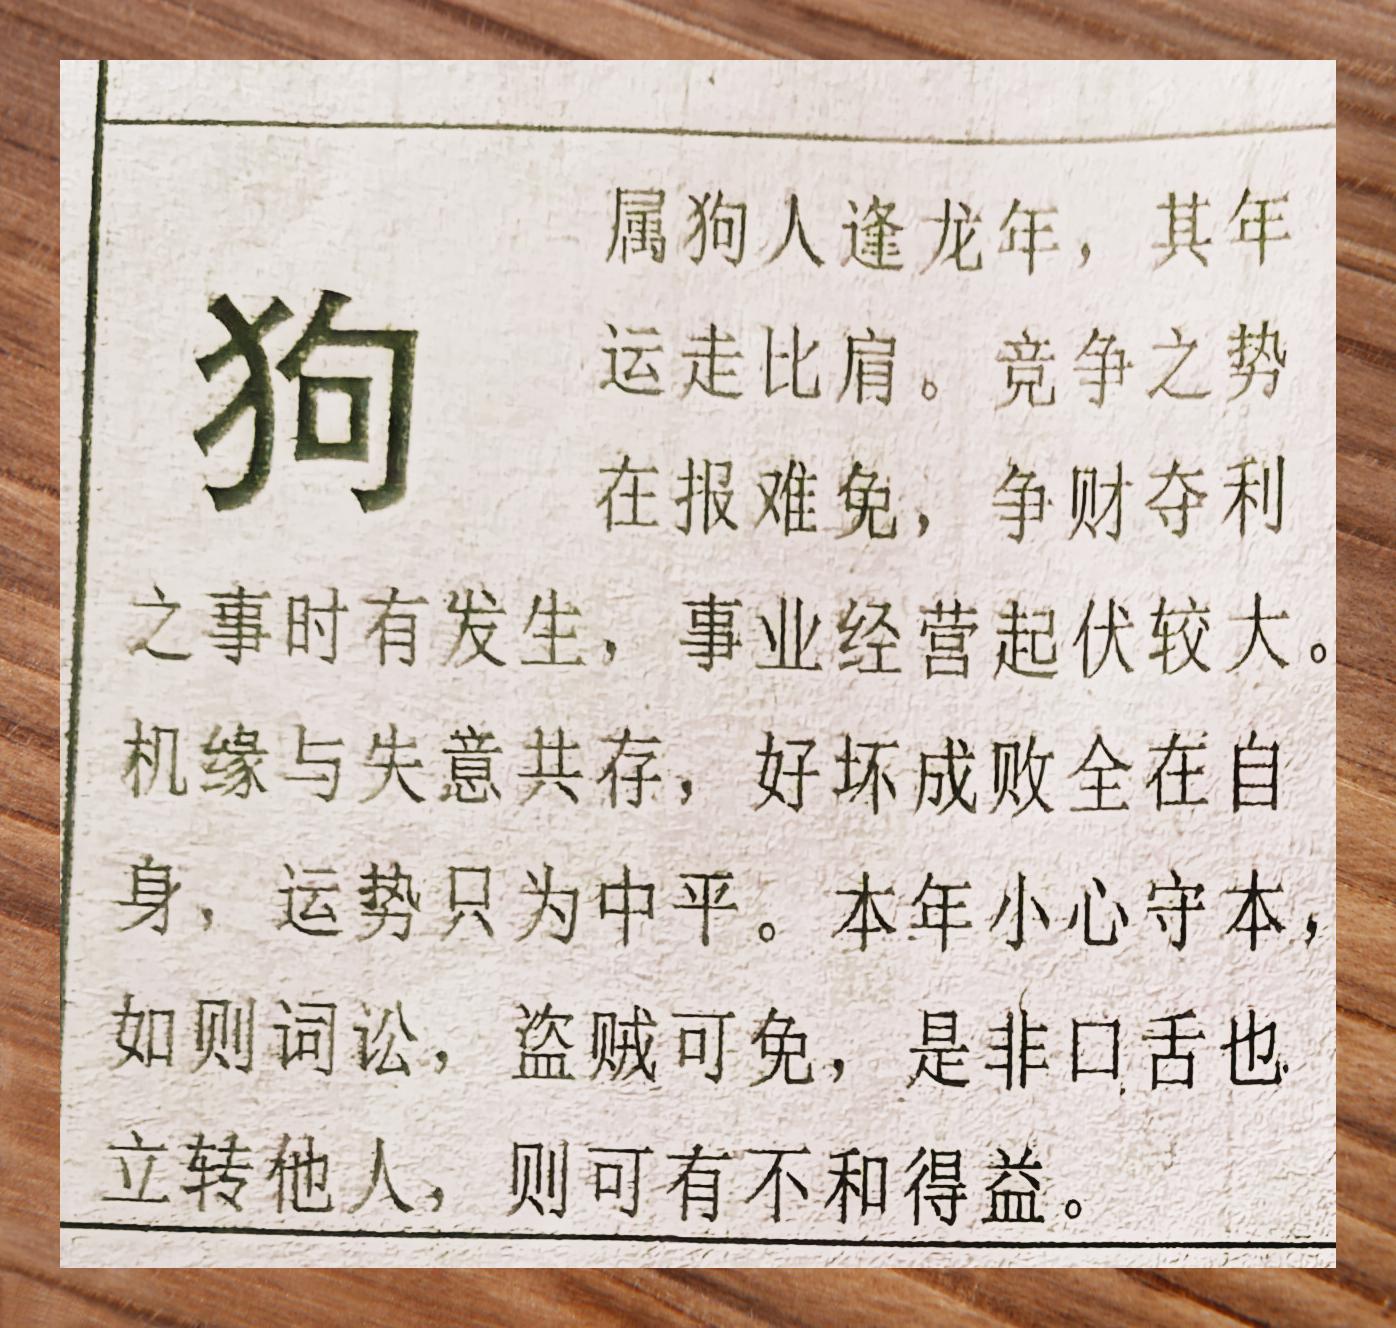 狗
属狗人逢龙年，其年
运走比肩。竞争之势
在报难免，争财夺利
之事时有发生，事业经营起伏较大。
机缘与失意共存，好坏成败全在自
身，运势只为中平。本年小心守本，
如则词讼，盗贼可免，是非口舌也
立转他人，则可有不和得益。